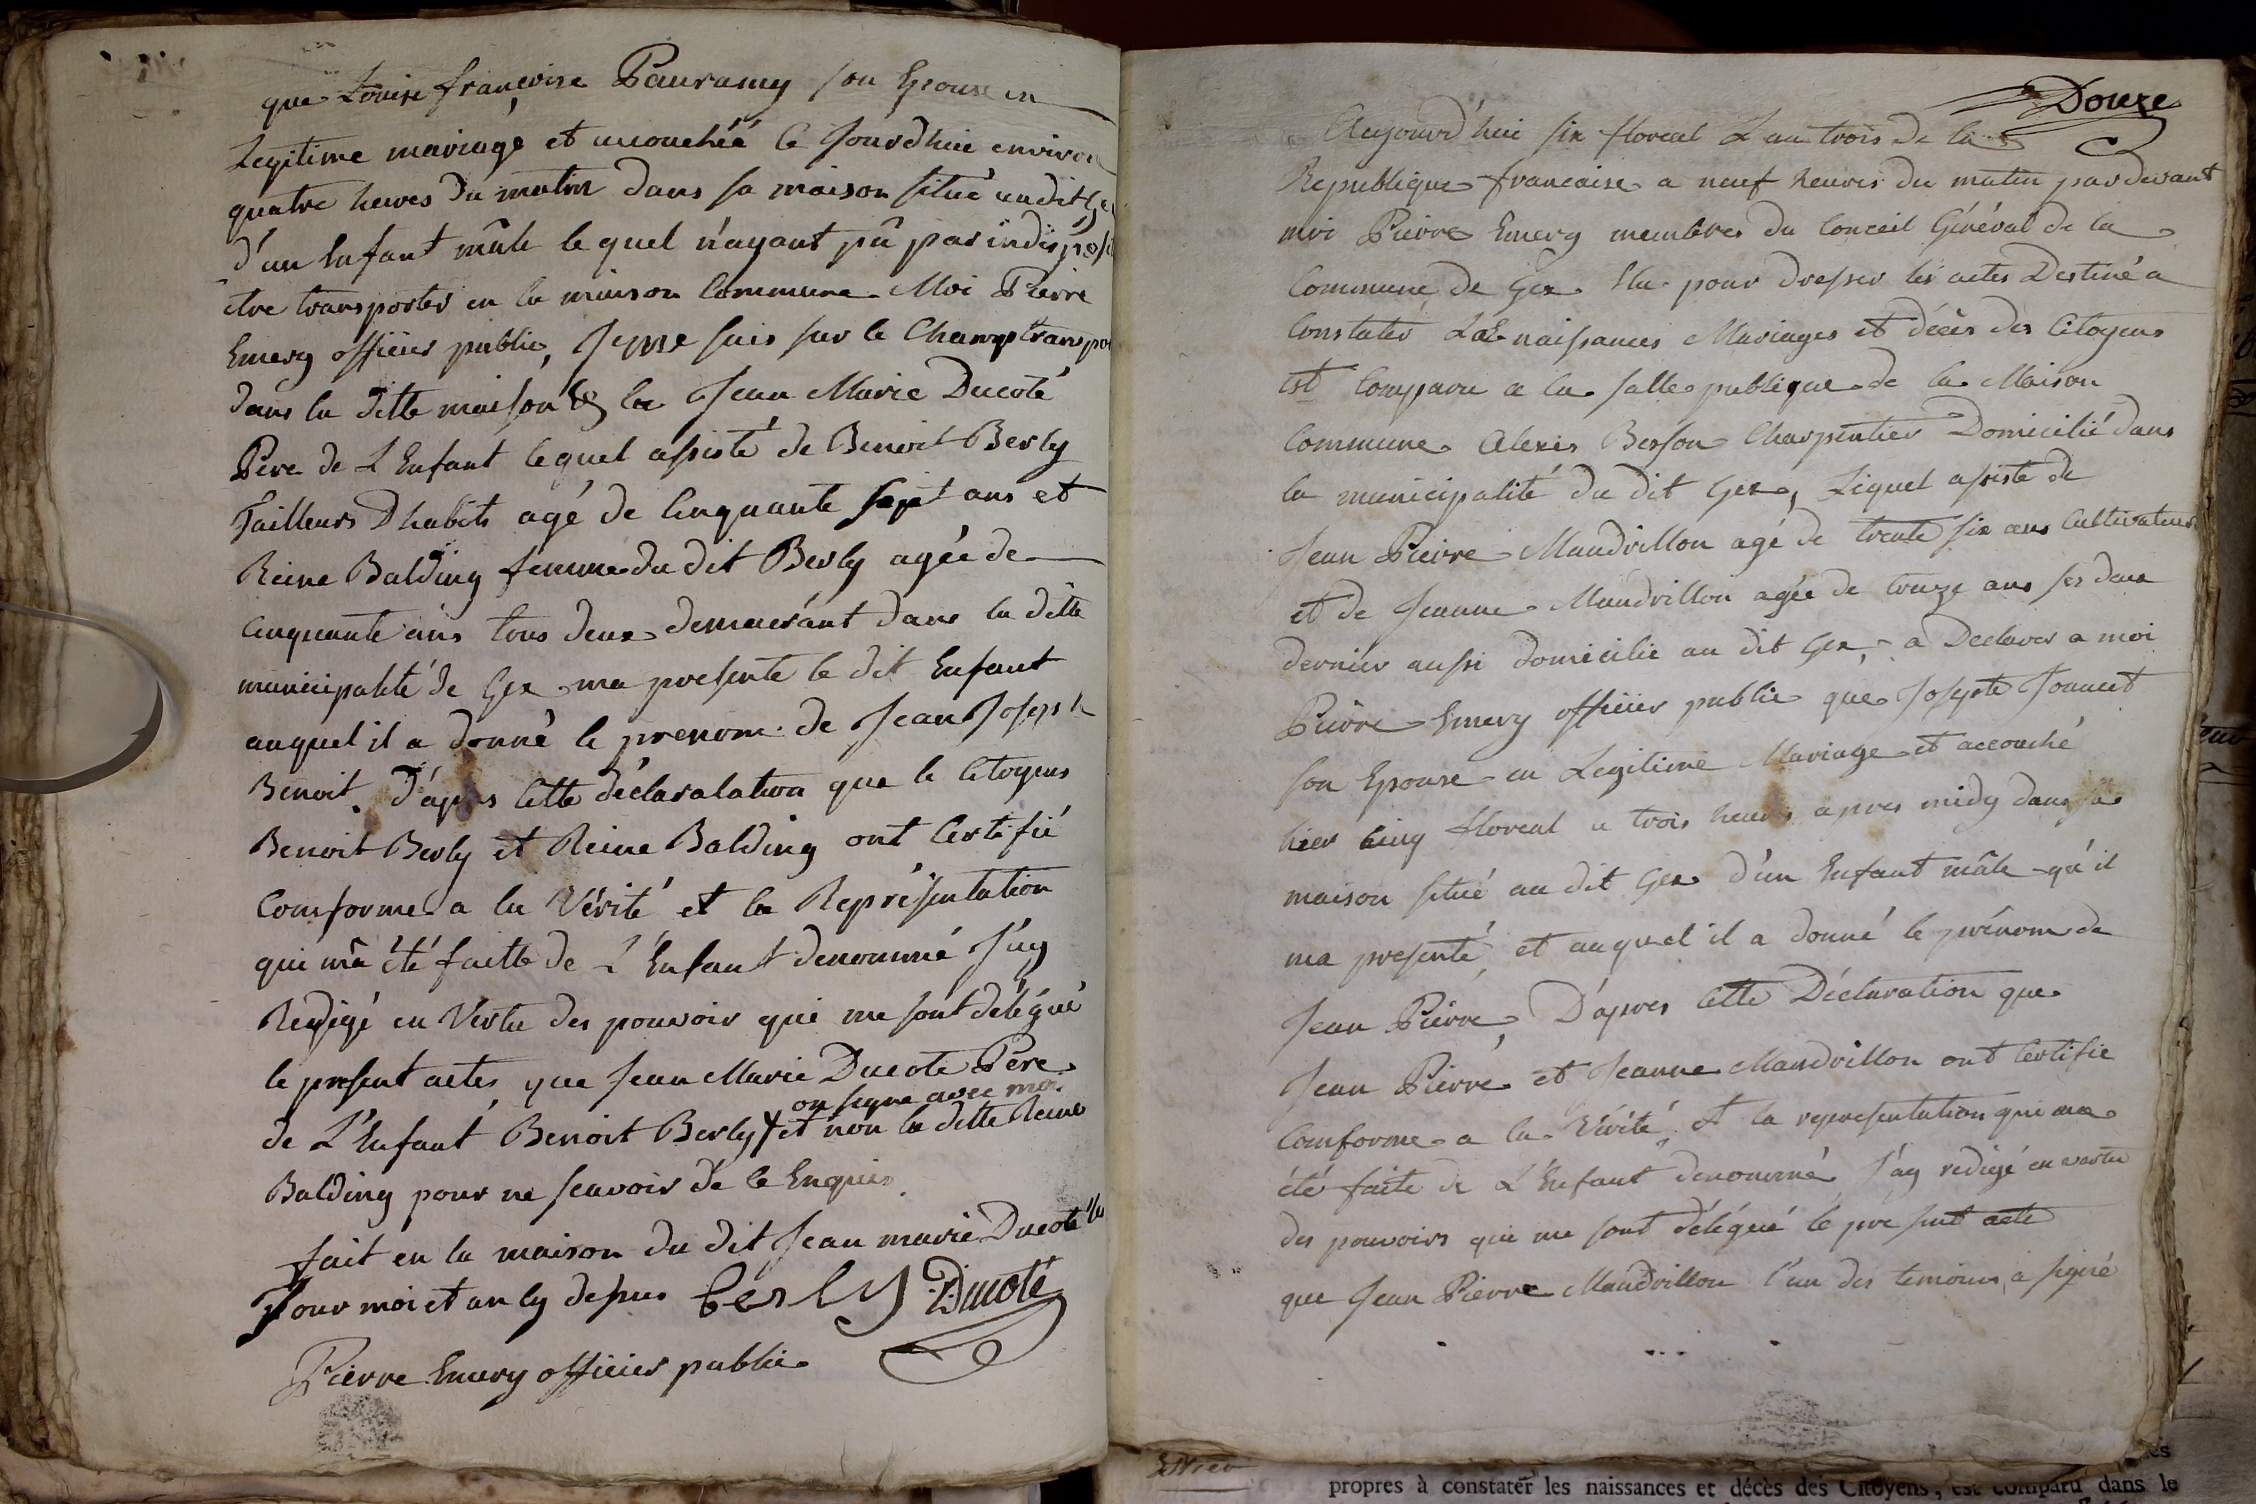 que Louise françoise Pauramy son Epouse en
Legitime mariage et accouchéé ce Jourdhui environ
quatre heures du matin dans sa maison situé audit Gex
d'un Enfant mâle lequel n'ayant pû par indispo
etre transporter en la maison Commune Moi Pierre
Emery officier public, Je me suis sur le Champ transpo
dans la ditte maison la Jean Marie Ducoté
Pere de L'Enfant lequel assisté de Benoit Berly
Tailleurs D'habits agé de Cinquante Sept ans et
Reine Balding femme du dit Berly agée de
Cinquante ans tous deux demeurant dans la ditte
municipalité de Gex ma presente le dit Enfant
auquel il a donné le prenom de Jean Joseph
Benoit, D'apres Cette déclaralation que le Citoyens
Benoit Berly et Reine Balding ont Certifié
Comforme a la Vérité et la Représentation
qui mâ été faitte de L'Enfant denommé J'ay
Redigé en Vertu des pouvoir qui me sont délégué
le present actes, que Jean Marie Ducote Pere
on signe avec moi
de L'Enfant Benoit Berly et non la ditte Reine
Balding pour ne scavoir de ce Enquis
fait en la maison du dit Jean marie Ducoté les
Jour moi et an cy dessus Berly Ducoté
Pierre Emery officier public
Douze
Aujourd'hui six floreal L'an trois de la
Republique francaise a neuf heures du matin par devant
moi Pierre Emery membres du Conceil Général de la
Commune de Gex Elu pour dresser les actes Destiné a
Constater Les naissances Mariages et décès des Citoyens
est Comparu a la salle publique de la Maison
Commune Alexis Berson Charpentier Domicilié dans
la municipalité du dit Gex, Lequel assiste de
Jean Pierre Mandrillon agé de trente six ans Cultivateur
et de Jeanne Mandrillon agée de trouze ans ses deux
dernier aussi domicilie au dit Gex, a Declarer a moi
Pierre Emery officier public que Josepte Jonnet
son Epouse en Legitime Mariage et accouché
hier cinq floreal a trois heures apres midy dans sa
maison situé au dit Gex d'un Enfant mâle qu'il
ma presenté, et auquel il a donné le prénom de
Jean Pierre, D'apres Cette Déclaration que
Jean Pierre et Jeanne Mandrillon ont Certifie
Comforme a la Vérité, et la representation qui ma
été faite de L'Enfant denommé J'ay redigé en vertu
des pouvoirs qui me sont délégué le present acte
que Jean Pierre Mandrillon l'un des temoins a signé
propres à constater les naissances et décès des Citoyens, est comparu dans le